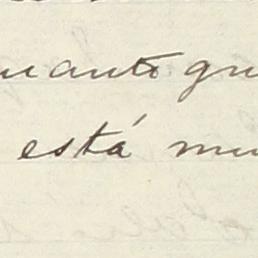 uanto gu
está mu